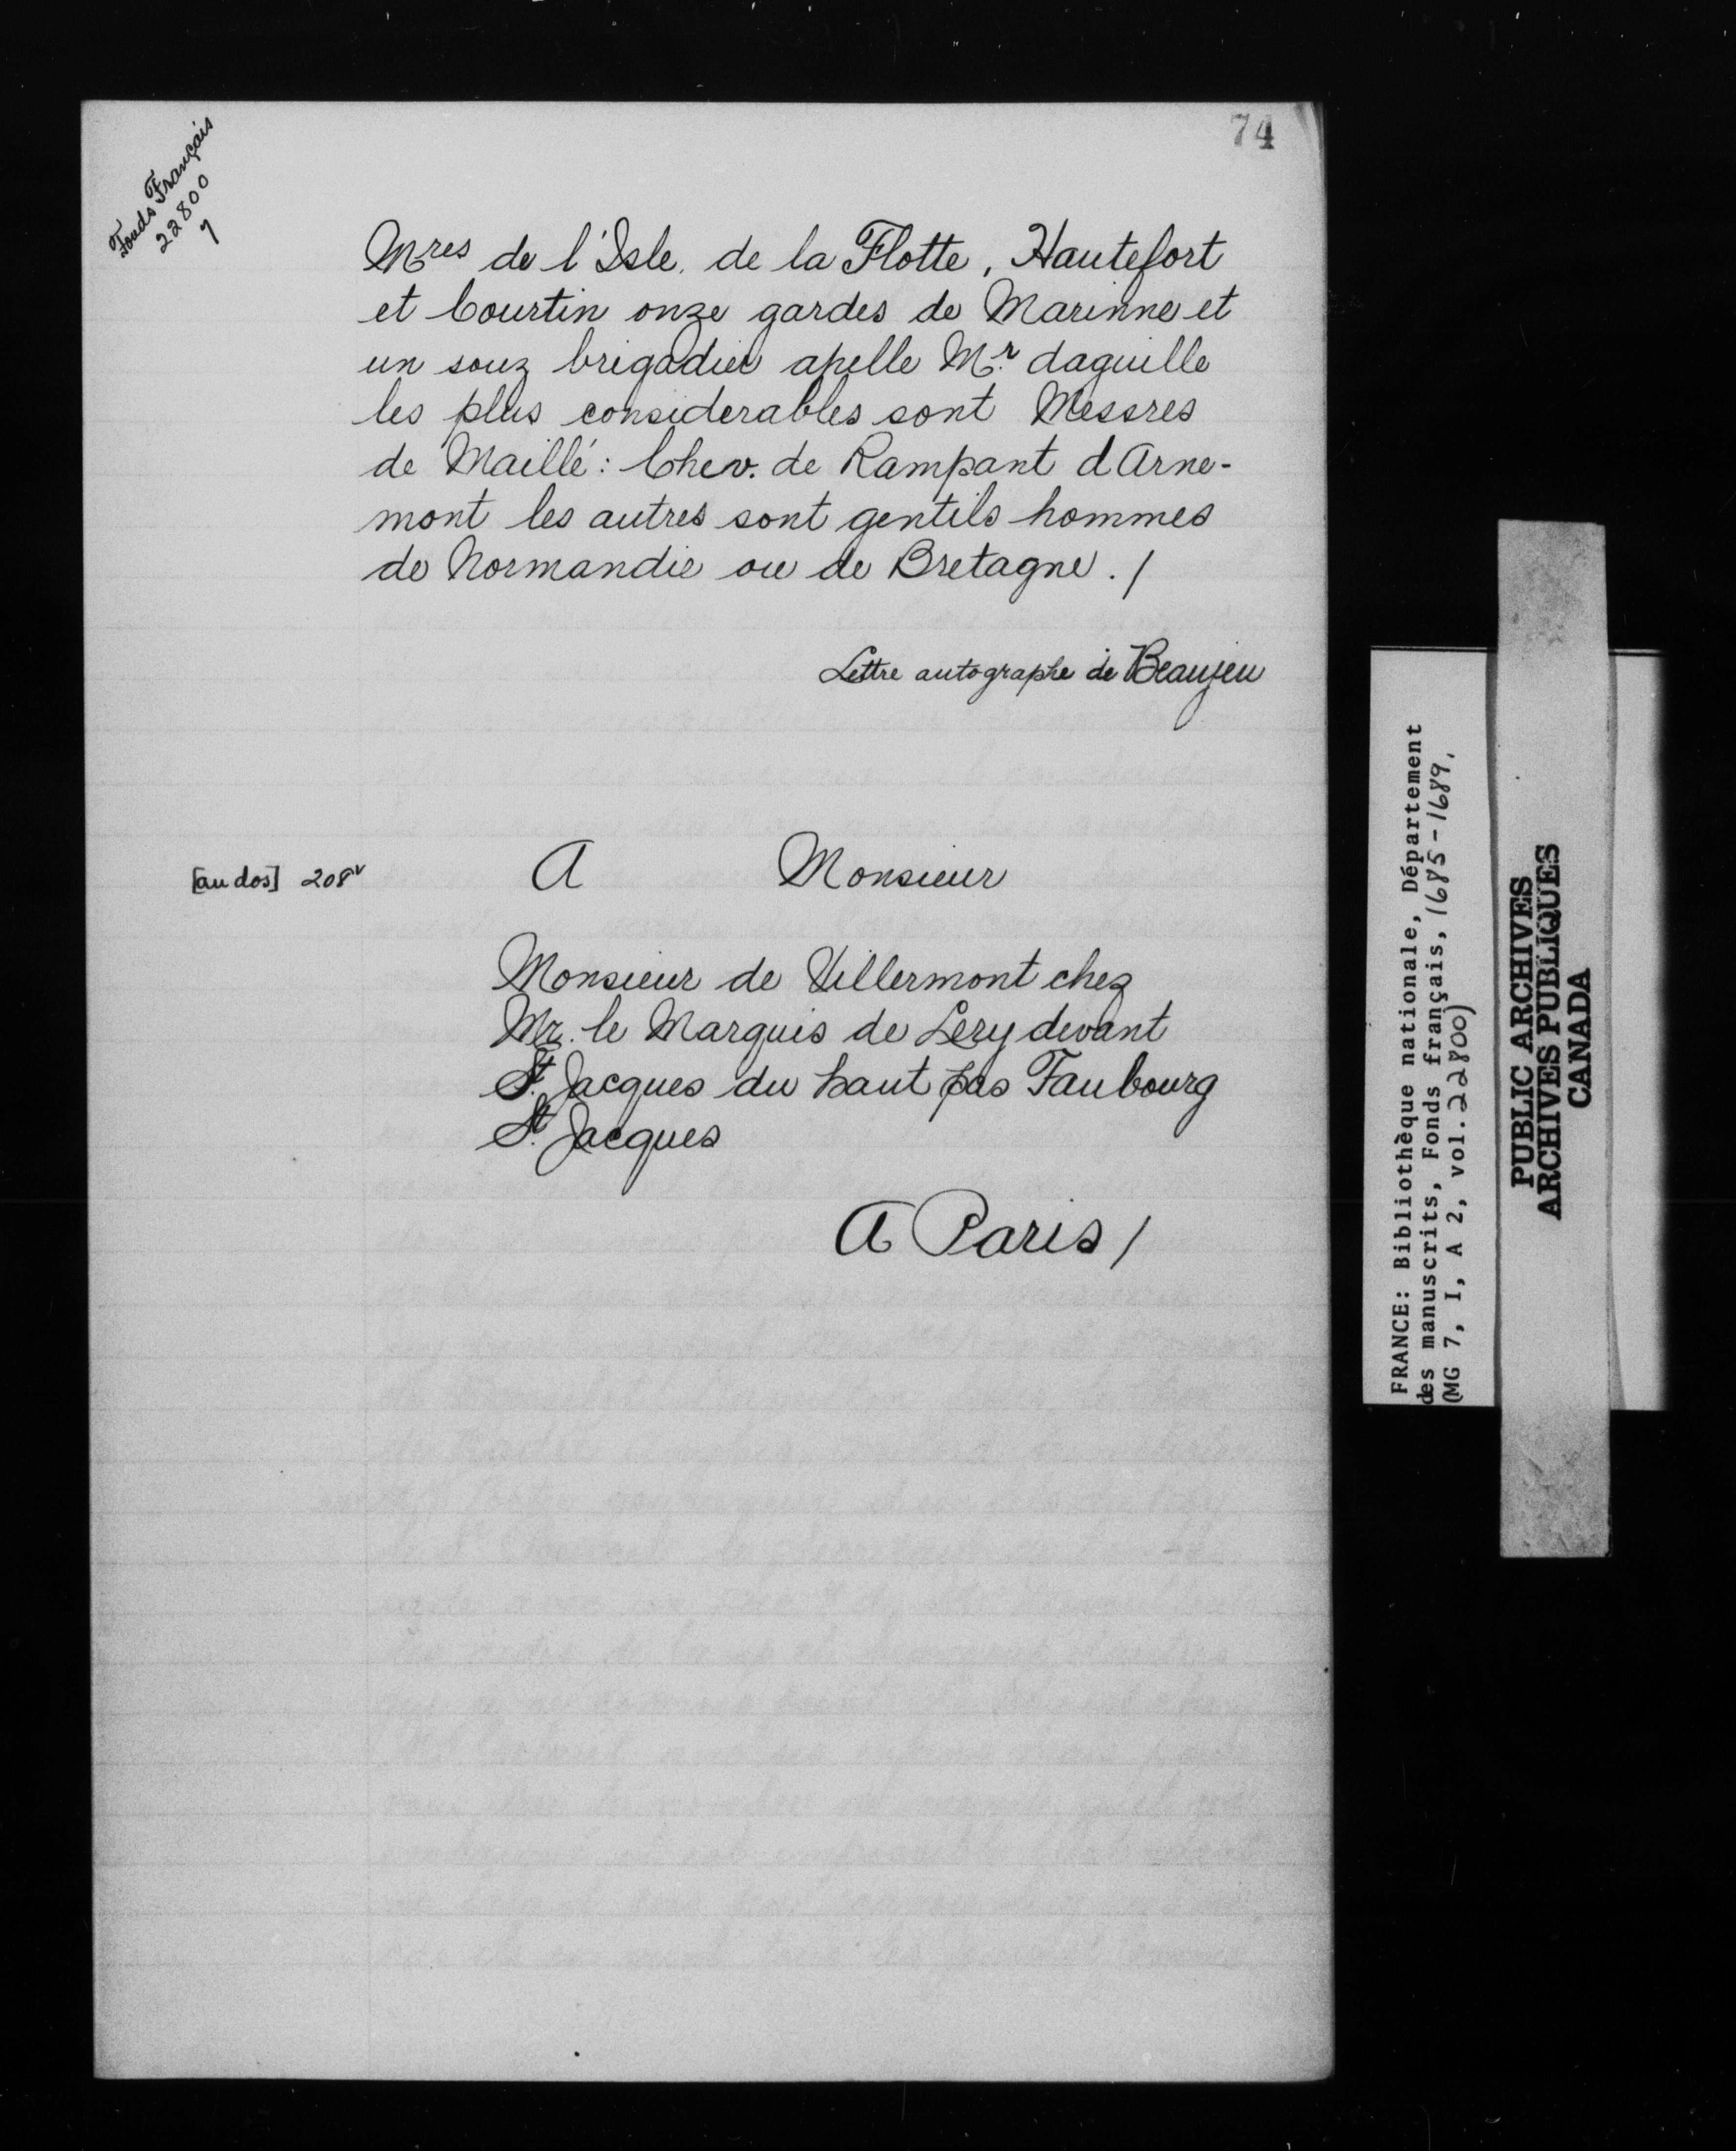 74
Fonds Français
22800
7
Mres de l'Isle. de la Flotte, Hautefort
et Courtin onze gardes de Marinne et
un souz brigadier apelle Mr. daguille
les plus considerables sont Messres
de Maillé: Chev. de Rampant d Arne-
mont les autres sont gentils hommes
de Normandie ou de Bretagne. /
Lettre autographe de Beaujeu
[au dos] 208v
A Monsieur
Monsieur de Villermont chez
Mr. le Marquis de Lery devant
St. Jacques du haut pas Faubourg
St. Jacques
A Paris /
FRANCE: Bibliothèque nationale, Département
des manuscrits, Fonds français, 1685-1689.
(MG 7, I, A 2, vol. 22800)
PUBLIC ARCHIVES
ARCHIVES PUBLIQUES
CANADA